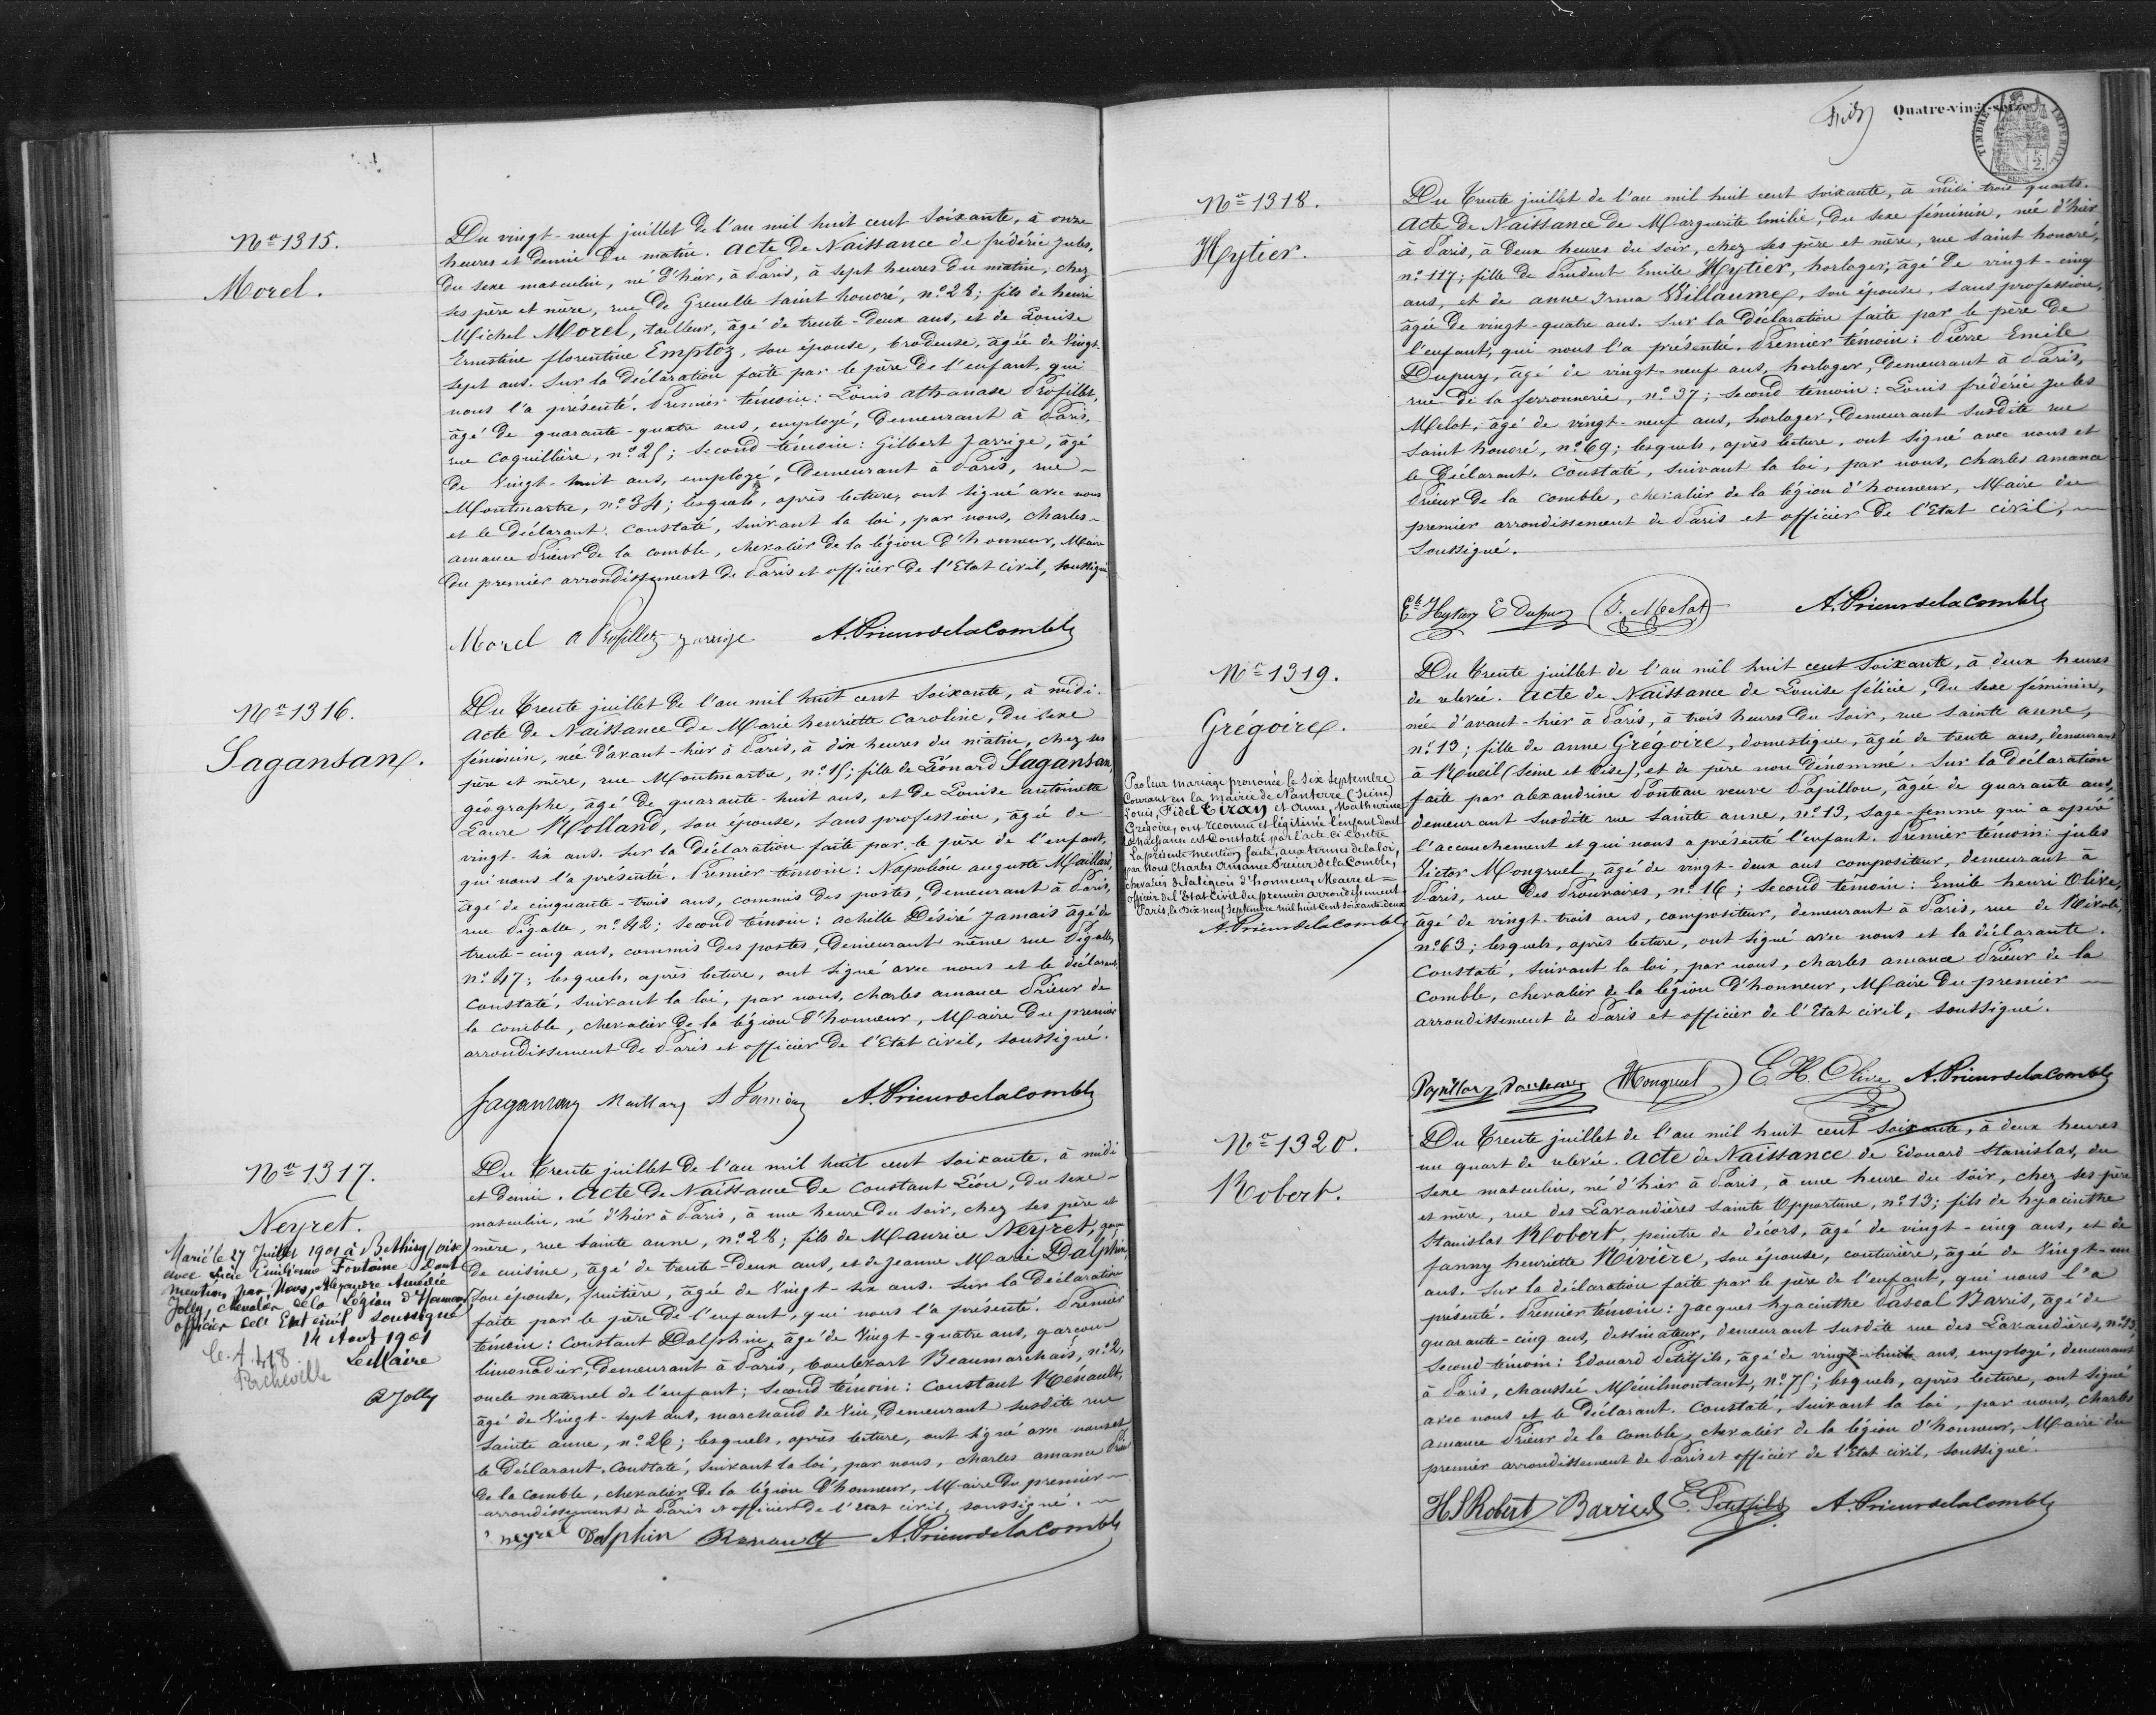 No 1315.
Morel.
Du vingt-neuf juillet de l'an mil huit cent soixante, à onze
heures et demie du matin. Acte de Naissance de frédéric Jules,
du sexe masculin, né d'hier, à Paris, à sept heures du matin, chez
ses père et mère, rue de Grenelle saint honoré, no 28; fils de henri
Michel Morel, tailleur, âgé de trente-deux ans, et de Louise
Ernestine florentine Emptoz, son épouse, brodeuse, âgée de vingt-
sept ans. Sur la déclaration faite par le père de l'enfant, qui
nous l'a présenté. Premier témoin: Louis athanase Profillet,
âgé de quarante-quatre ans, employé, demeurant à Paris,
rue Coquillière, no 25; second témoin: Gilbert Jarrige, âgé
de vingt-huit ans, employé, demeurant à Paris, rue
Montmartre, no 34; lesquels, après lecture, ont signé avec nous
et le déclarant. Constaté, suivant la loi, par nous, charles-
amance Prieur de la comble, chevalier de la légion d'honneur, Maire
du premier arrondissement de Paris et officier de l'Etat civil, soussigné.
Morel A Profillet Jarrige A. Prieur de la Comble
No 1316.
Sagansan.
Du trente juillet de l'an mil huit cent soixante, à midi.
Acte de Naissance de Marie henriette Caroline, du sexe
féminin, née d'avant-hier à Paris, à dix heures du matin, chez ses
père et mère, rue Montmartre, no 15; fille de Léonard Sagansan,
géographe, âgé de quarante-huit ans, et de Louise antoinette
Laure Rolland, son épouse, sans profession, âgée de
vingt-six ans. Sur la déclaration faite par le père de l'enfant,
qui nous l'a présenté. Premier témoin: Napoléon auguste Maillard,
âgé de cinquante-trois ans, commis des postes, demeurant à Paris,
rue Pigalle, no 42; second témoin: achille Désiré Jamais âgé de
trente-cinq ans, commis des postes, demeurant même rue Pigalle,
no 47; lesquels, après lecture, ont signé avec nous et le déclarant.
Constaté, suivant la loi, par nous, charles amance Prieur de
la comble, chevalier de la légion d'honneur, Maire du premier
arrondissement de Paris et officier de l'Etat civil, soussigné.
Sagansan Maillard A. Prieur de la Comble
No 1317.
Neyret.
Marié le 27 Juillet 1901 à Béthisy (oise)
avec Lucie Emilienne Fontaine Dont
mention par Nous, Alexandre Amédée
Jolly, chevalier de la Légion d'Honneur
officier de l'Etat civil soussigné
14 Aout 1901
Le Maire
A Jolly
Du trente juillet de l'an mil huit cent soixante, à midi
et demie. Acte de Naissance de Constant Léon, du sexe
masculin, né d'hier à Paris, à une heure du soir, chez ses père et
mère, rue Sainte anne, no 28; fils de Maurice Neyret, garçon
de cuisine, âgé de trente-deux ans, et de Jeanne Marie Dalphin,
son épouse, fruitière, âgée de vingt-six ans. Sur la déclaration
faite par le père de l'enfant, qui nous l'a présenté. Premier
témoin: Constant Dalphin, âgé de vingt-quatre ans, garçon
limonadier, demeurant à Paris, boulevart Beaumarchais, no 2,
oncle maternel de l'enfant; second témoin: Constant Rénault,
âgé de vingt-sept ans, marchand de vin, demeurant susdite rue
Sainte anne, no 26; lesquels, après lecture, ont signé avec nous et
le déclarant. Constaté, suivant la loi, par nous, charles amance Prieur
de la comble, chevalier de la légion d'honneur, Maire du premier
arrondissement de Paris et officier de l'Etat civil, soussigné.
neyret Dalphin Renault A. Prieur de la Comble
Quatre-vingt-seize
TIMBRE IMPERIAL
No 1318.
Hytier.
Du trente juillet de l'an mil huit cent soixante, à midi trois quarts.
Acte de Naissance de Marguerite Emilie, du sexe féminin, née d'hier
à Paris, à deux heures du soir, chez ses père et mère, rue saint honoré,
no 117; fille de Prudent Emile Hytier, horloger, âgé de vingt-cinq
ans, et de anne Irma Villaume, son épouse, sans profession,
âgée de vingt-quatre ans. Sur la déclaration faite par le père de
l'enfant, qui nous l'a présentée. Premier témoin: Pierre Emile
Dupuy, âgé de vingt-neuf ans, horloger, demeurant à Paris,
rue de la ferronnerie, no 37; second témoin: Louis frédéric Jules
Melot, âgé de vingt-neuf ans, horloger, demeurant susdite rue
saint honoré, no 69; lesquels, après lecture, ont signé avec nous et
le déclarant. Constaté, suivant la loi, par nous, charles amance
Prieur de la comble, chevalier de la légion d'honneur, Maire du
premier arrondissement de Paris et officier de l'Etat civil,
soussigné.
Hytier E Dupuy J. Melot A. Prieur de la Comble
No 1319.
Grégoire.
Par leur mariage prononcé le six Septembre
Courant en la Mairie de Nanterre (Seine)
Louis, Fidel Tiray et Anne, Matherine
Grégoire, ont reconnu et légitimé l'enfant dont
la naissance est Constatée par l'acte ci Contre
La présente mention faite, aux termes de la loi,
par Nous Charles Amance Prieur de la Comble,
chevalier de la légion d'honneur, Maire et
officier de l'Etat Civil du premier arrondissement
Paris, le dix neuf Septembre mil huit Cent Soixante deux
A. Prieur de la Comble
Du trente juillet de l'an mil huit cent soixante, à deux heures
de relevée. Acte de Naissance de Louise félicie, du sexe féminin,
née d'avant-hier à Paris, à trois heures du soir, rue Sainte anne,
no 13; fille de anne Grégoire, domestique, âgée de trente ans, demeurant
à Rueil (Seine et Oise), et de père non dénommé. Sur la déclaration
faite par alexandrine Ponteau veuve Papillon, âgée de quarante ans,
demeurant susdite rue Sainte anne, no 13, sage-femme qui a opéré
l'accouchement et qui nous a présenté l'enfant. Premier témoin: jules
Victor Mongruel, âgé de vingt-deux ans compositeur, demeurant à
Paris, rue des Prouvaires, no 16; second témoin: Emile henri Olive,
âgé de vingt-trois ans, compositeur, demeurant à Paris, rue de Rivoli,
no 63; lesquels, après lecture, ont signé avec nous et la déclarante.
Constaté, suivant la loi, par nous, charles amance Prieur de la
comble, chevalier de la légion d'honneur, Maire du premier
arrondissement de Paris et officier de l'Etat civil, soussigné.
Papillon Mongruel E. H. Olive A. Prieur de la Comble
No 1320.
Robert.
Du trente juillet de l'an mil huit cent soixante, à deux heures
un quart de relevée. Acte de Naissance de Edouard Stanislas, du
sexe masculin, né d'hier à Paris, à une heure du soir, chez ses père
et mère, rue des Lavandières Sainte Opportune, no 13; fils de hyacinthe
Stanislas Robert, peintre de décors, âgé de vingt-cinq ans, et de
fanny henriette Rivière, son épouse, couturière, âgée de vingt-un
ans. Sur la déclaration faite par le père de l'enfant, qui nous l'a
présenté. Premier témoin: jacques hyacinthe Pascal Barris, âgé de
quarante-cinq ans, dessinateur, demeurant susdite rue des Lavandières, no 13,
second témoin: Edouard Petitfils, âgé de vingt-huit ans, employé, demeurant
à Paris, chaussée Ménilmontant, no 75; lesquels, après lecture, ont signé
avec nous et le déclarant. Constaté, suivant la loi, par nous, charles
amance Prieur de la comble, chevalier de la légion d'honneur, Maire du
premier arrondissement de Paris et officier de l'Etat civil, soussigné.
H S Robert Barris E. Petitfils A. Prieur de la Comble